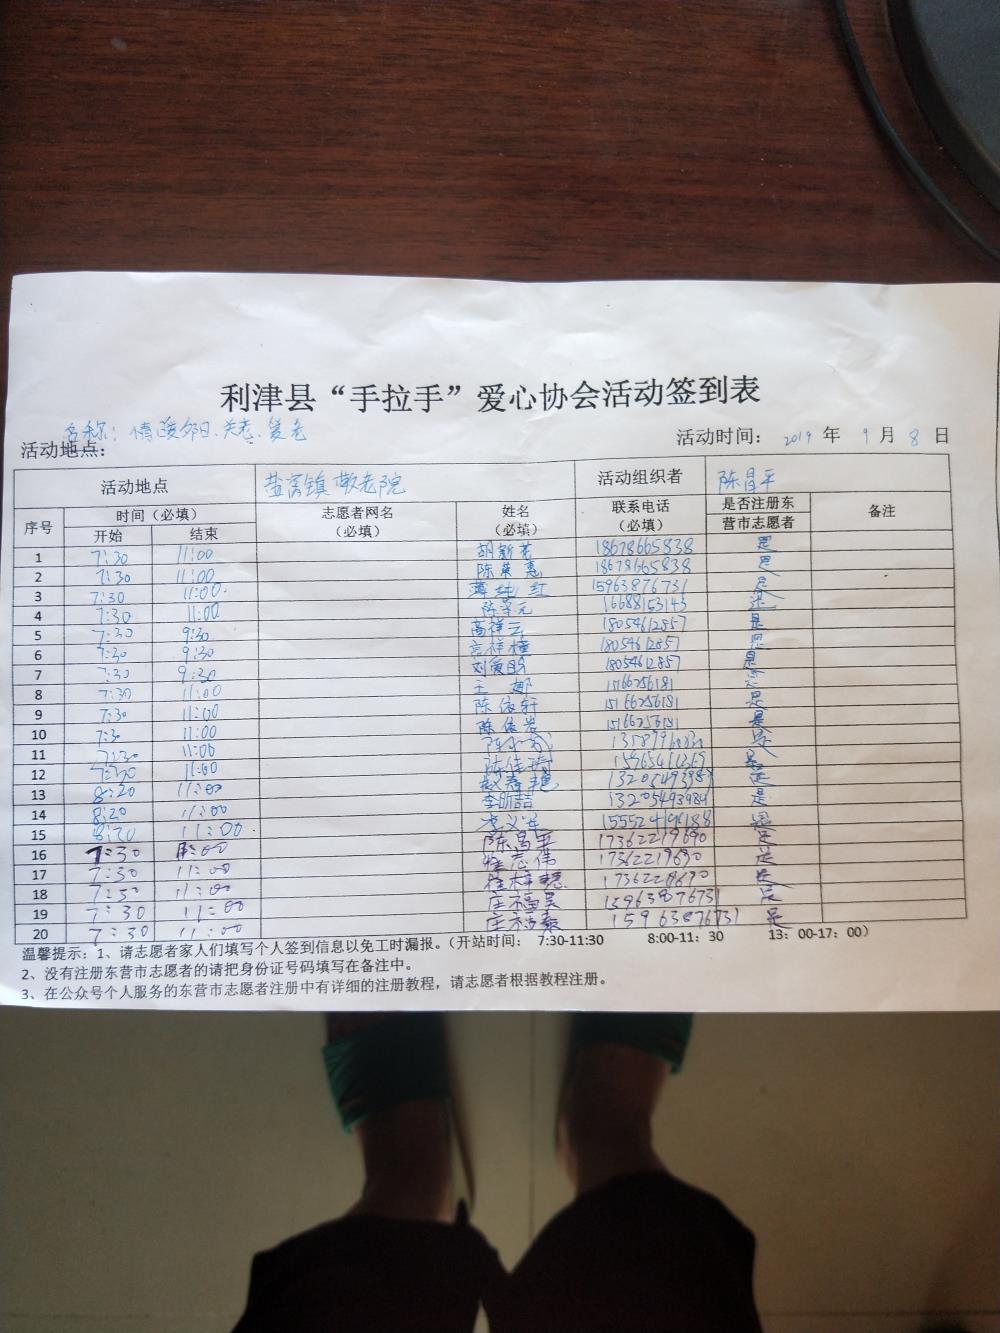 利津县“手拉手”爱心协会活动签到表
名称：情暖夕阳、关老、爱老
活动地点： 活动时间： 2019 年 9 月 8 日
活动地点 盐窝镇敬老院 活动组织者 陈昌平
序号 时间（必填） 志愿者网名（必填） 姓名（必填） 联系电话（必填） 是否注册东营市志愿者 备注
开始 结束
1 7:30 11:00 18678665838 是
2 7:30 11:00 陈荣惠 18678665838 是
3 7:30 11:00 红 15963876731 是
4 7:30 11:00 16688153143
5 7:30 9:30 高祥云 18054612857 是
6 7:30 9:30 18054612857 是
7 7:30 9:30 18054612857 是
8 7:30 11:00 王娜 15166256181
9 7:30 11:00 陈依轩 15166256181 是
10 7:30 11:00 陈依 15166256181 是
11 7:30 11:00 是
12 7:30 11:00 是
13 8:20 11:00 13205493984 是
14 8:20 11:00 李昕喆 13205493984 是
15 8:20 11:00 李义 15552419488 是
16 7:30 11:00 陈昌平 17362219690 是
17 7:30 11:00 志伟 17362219690 是
18 7:30 11:00 17362219690 是
19 7:30 11:00 庄福昊 15963876731 是
20 7:30 11:00 庄福 15963876731 是
温馨提示：1、请志愿者家人们填写个人签到信息以免工时漏报。（开站时间： 7:30-11:30 8:00-11：30 13：00-17：00）
2、没有注册东营市志愿者的请把身份证号码填写在备注中。
3、在公众号个人服务的东营市志愿者注册中有详细的注册教程，请志愿者根据教程注册。